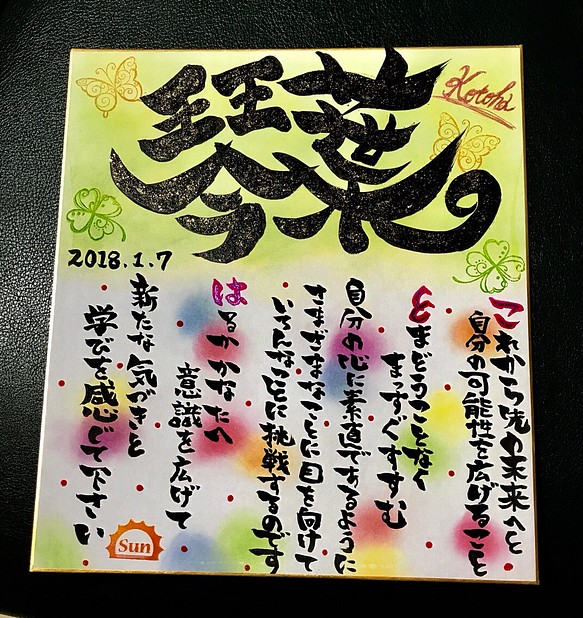 琴葉
Kotoha
2018.1.7
これから先の未来へと
自分の可能性を広げること
とまどうことなく
まっすぐすすむ
自分の心に素直であるように
さまざまなことに目を向けて
いろんなことに挑戦するのです
はるかかなたへ
意識を広げて
新たな気づきと
学びを感じて下さい
Sun